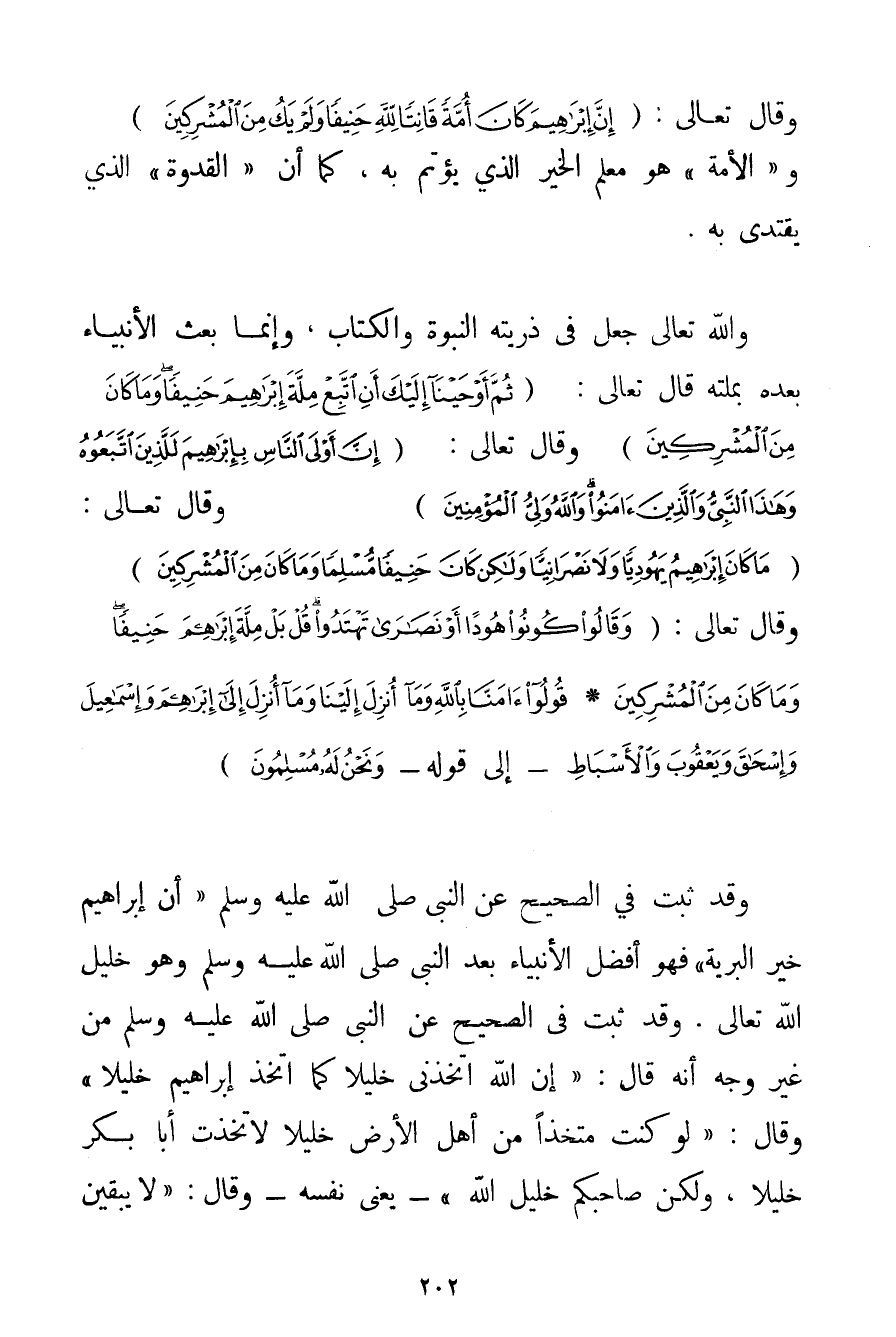 وقال تعـالى : ( إِنَّ إِبْرَٰهِيمَ كَانَ أُمَّةً قَانِتًا لِّلَّهِ حَنِيفًا وَلَمْ يَكُ مِنَ ٱلْمُشْرِكِينَ )
و « الأمة » هو معلم الخير الذي يؤتم به ، كما أن « القدوة » الذي
يقتدى به .
والله تعالى جعل فى ذريته النبوة والكتاب ، وإنمـا بعث الأنبيـاء
بعده بملته قال تعالى : ( ثُمَّ أَوْحَيْنَآ إِلَيْكَ أَنِ ٱتَّبِعْ مِلَّةَ إِبْرَٰهِيمَ حَنِيفًا ۖ وَمَا كَانَ
مِنَ ٱلْمُشْرِكِينَ ) وقال تعالى : ( إِنَّ أَوْلَى ٱلنَّاسِ بِإِبْرَٰهِيمَ لَلَّذِينَ ٱتَّبَعُوهُ
وَهَٰذَا ٱلنَّبِىُّ وَٱلَّذِينَ ءَامَنُوا۟ ۗ وَٱللَّهُ وَلِىُّ ٱلْمُؤْمِنِينَ ) وقال تعـالى :
( مَا كَانَ إِبْرَٰهِيمُ يَهُودِيًّا وَلَا نَصْرَانِيًّا وَلَٰكِن كَانَ حَنِيفًا مُّسْلِمًا وَمَا كَانَ مِنَ ٱلْمُشْرِكِينَ )
وقال تعالى : ( وَقَالُوا۟ كُونُوا۟ هُودًا أَوْ نَصَٰرَىٰ تَهْتَدُوا۟ ۗ قُلْ بَلْ مِلَّةَ إِبْرَٰهِـۧمَ حَنِيفًا ۖ
وَمَا كَانَ مِنَ ٱلْمُشْرِكِينَ * قُولُوٓا۟ ءَامَنَّا بِٱللَّهِ وَمَآ أُنزِلَ إِلَيْنَا وَمَآ أُنزِلَ إِلَىٰٓ إِبْرَٰهِـۧمَ وَإِسْمَٰعِيلَ
وَإِسْحَٰقَ وَيَعْقُوبَ وَٱلْأَسْبَاطِ ــ إلى قوله ــ وَنَحْنُ لَهُۥ مُسْلِمُونَ )
وقد ثبت في الصحيح عن النبى صلى الله عليه وسلم « أن إبراهيم
خير البرية» فهو أفضل الأنبياء بعد النبى صلى الله عليـه وسلم وهو خليل
الله تعالى . وقد ثبت فى الصحيح عن النبى صلى الله عليـه وسلم من
غير وجه أنه قال : « إن الله اتخذنى خليلا كما اتخذ إبراهيم خليلا »
وقال : « لو كنت متخذاً من أهل الأرض خليلا لاتخذت أبا بـكر
خليلا ، ولكن صاحبكم خليل الله » ــ يعنى نفسه ــ وقال : « لا يبقين
٢٠٢